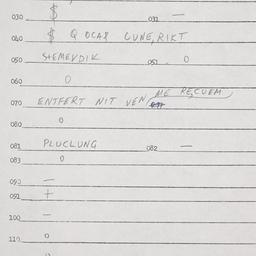 030 $ 031 —
040 $ Q OCAR CUNE, RIKT
050 STEMEVDIK 051 0
060 0
070 ENTFERT NIT VEN ME RECUEM
080 0
081 PLUCLUNG 082 —
083 0
090 —
091 +
100 —
110 0